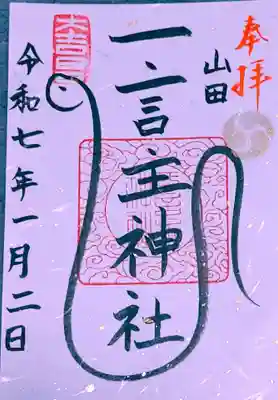 奉拝
山田
一言主神社
令和七年一月二日